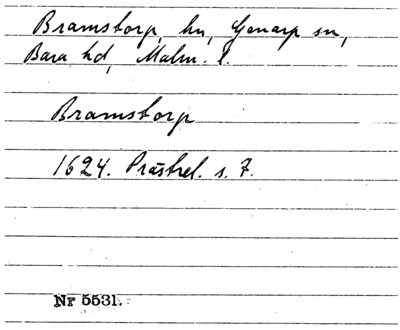 Bramstorp, hn, Genarp sn,
Bara hd, Malm. l.
Bramstorp
1624. Prästrel. s. 7.
Nr 5531.